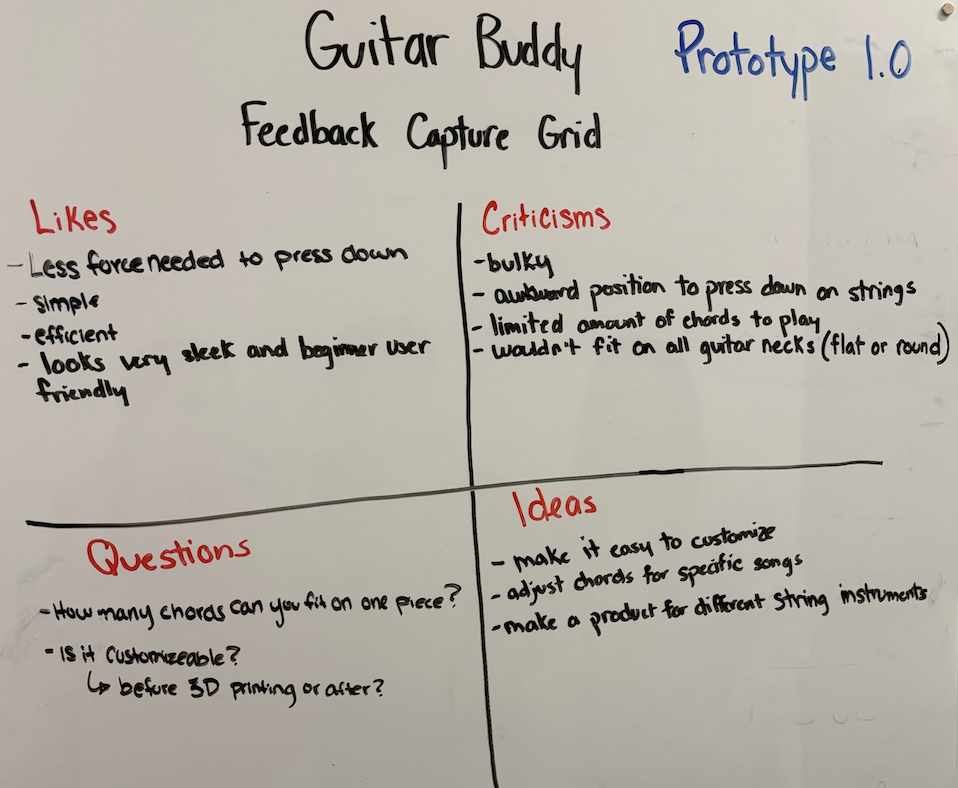 Guitar Buddy
Prototype 1.0
Feedback Capture Grid
Likes
- Less force needed to press down
- simple
- efficient
- looks very sleek and beginner user
friendly
Criticisms
- bulky
- awkward position to press down on strings
- limited amount of chords to play
- wouldn't fit on all guitar necks (flat or round)
Questions
- How many chords can you fit on one piece?
- Is it customizeable?
↳ before 3D printing or after?
Ideas
- make it easy to customize
- adjust chords for specific songs
- make a product for different string instruments